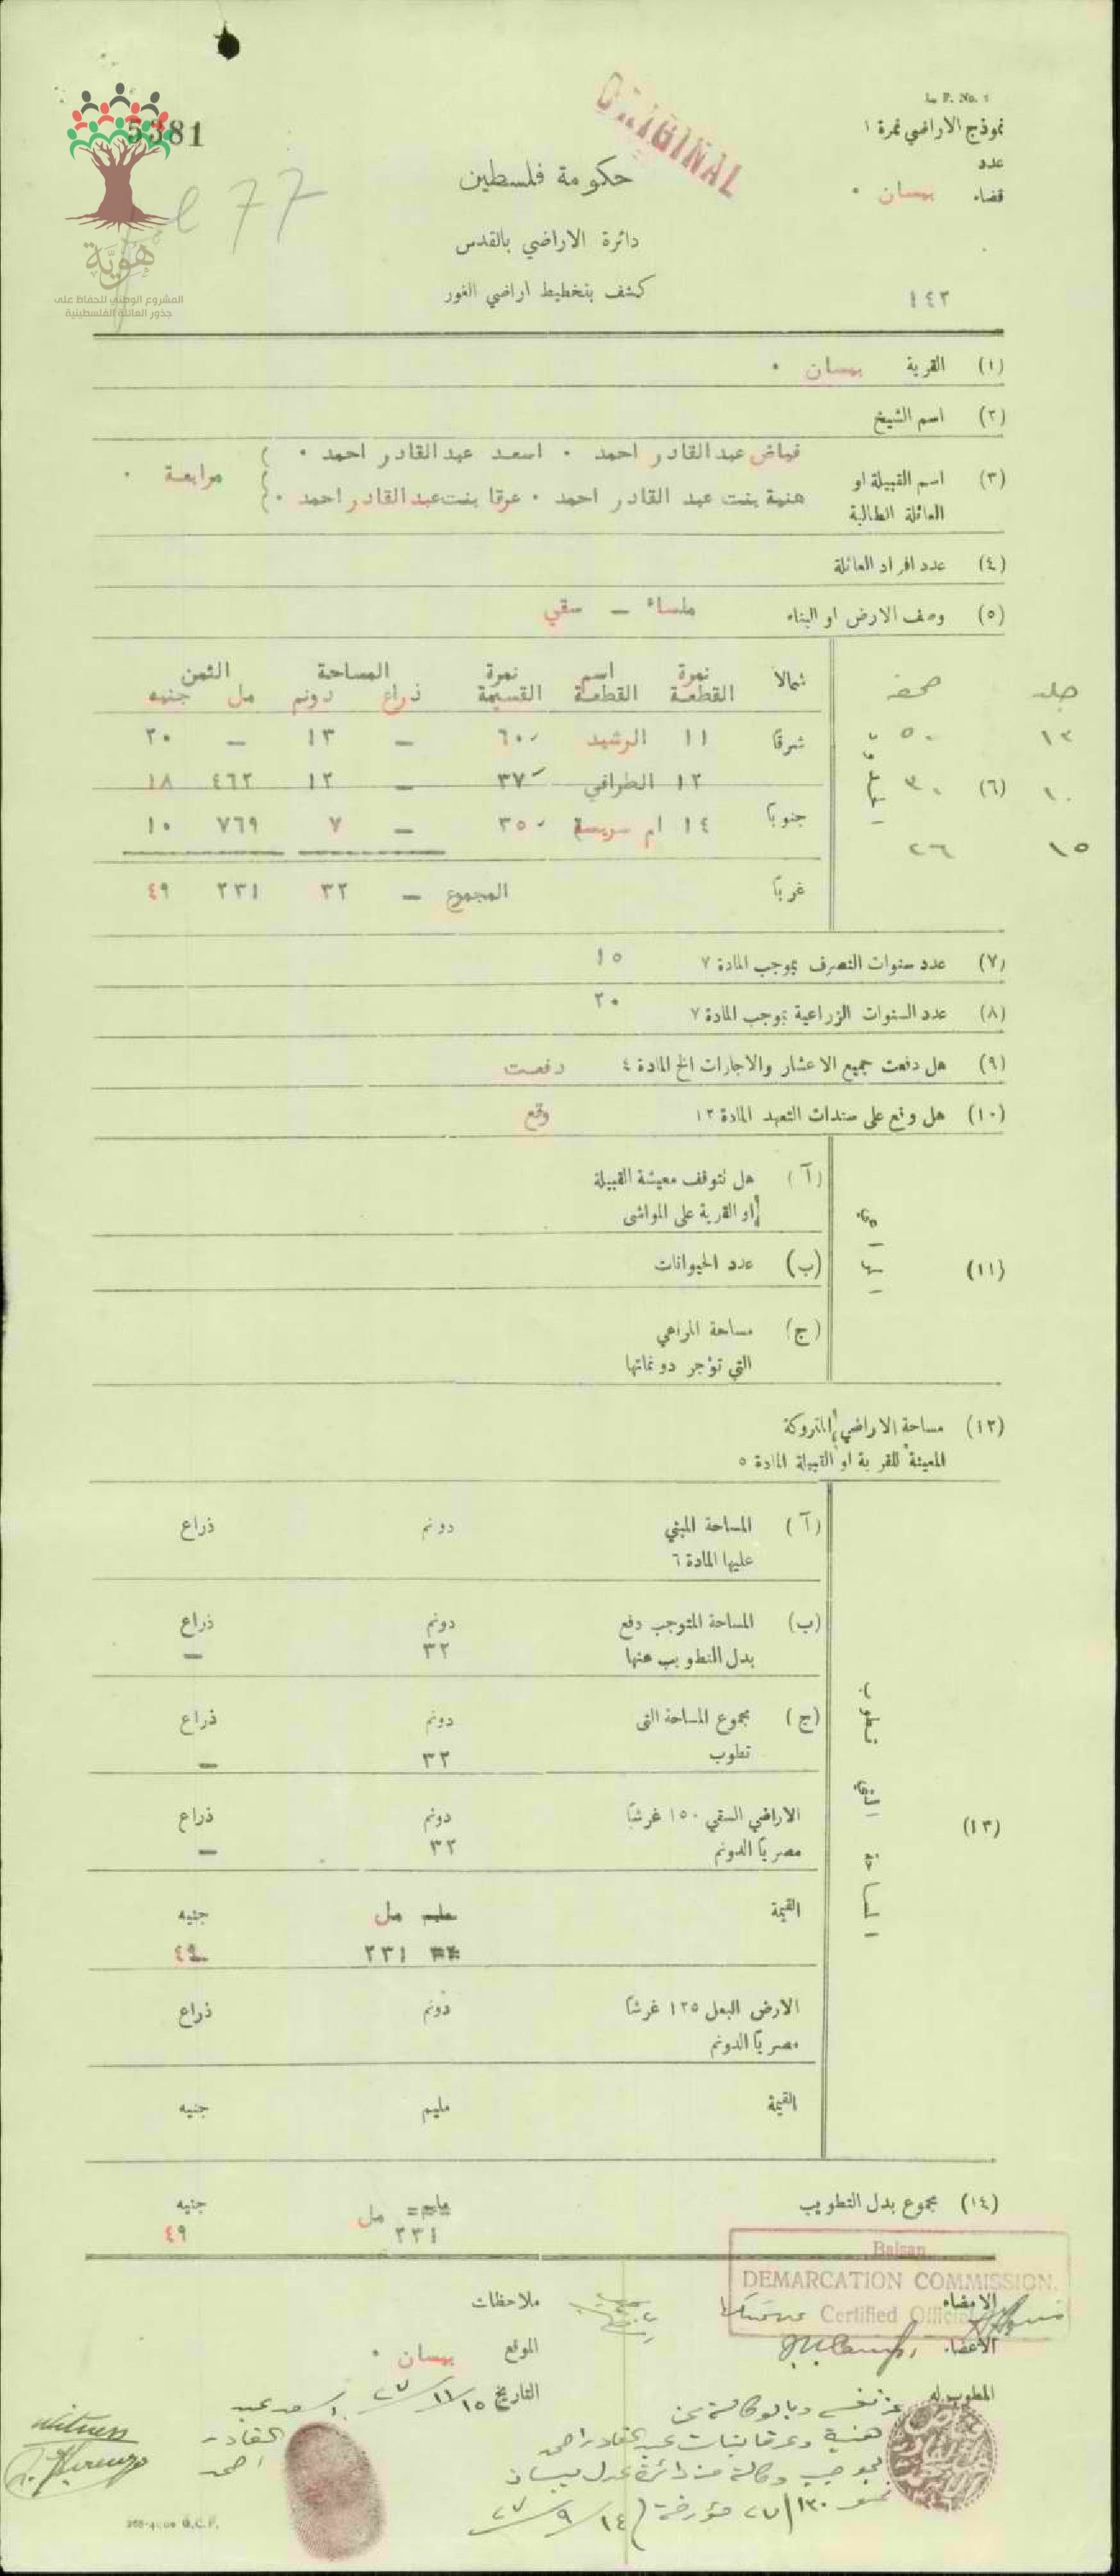 L. P. No. 1
نموذج الاراضي نمرة ١
5381
ORIGINAL
عدد
قضاء بيسان .
حكومة فلسطين
e 77
دائرة الاراضي بالقدس
هوية
المشروع الوطني للحفاظ على
جذور العائلة الفلسطينية
كشف بتخطيط اراضي الغور
١٤٢
(١) القرية بيسان .
(٢) اسم الشيخ
فياض عبدالقادر احمد . اسعد عبدالقادر احمد .
(٣) اسم القبيلة او
العائلة الطالبة
هنية بنت عبد القادر احمد . عرقا بنت عبدالقادر احمد .
مرابعة .
(٤) عدد افراد العائلة
(٥) وصف الارض او البناء ملساء — سقي
جلد صحفه
شمالا نمرة القطعة اسم القطعة نمرة القسيمة المساحة ذراع دونم الثمن مل جنيه
١٣ ٥٠ شرقا ١١ الرشيد ٦٠ — ١٣ — ٢٠
١٠ ٣٠ (٦) ١٢ الطرافي ٣٧ — ١٢ ٤٦٢ ١٨
جنوبا ١٤ ام سريسة ٣٥ — ٧ ٧٦٩ ١٠
١٥ ٢٦
غربا المجموع — ٣٢ ٢٣١ ٤٩
(٧) عدد سنوات التصرف بموجب المادة ٧ ١٥
(٨) عدد السنوات الزراعية بموجب المادة ٧ ٢٠
(٩) هل دفعت جميع الاعشار والاجارات الخ المادة ٤ دفعت
(١٠) هل وقع على سندات التعهد المادة ١٣ وقع
(١١) المراعي
(آ) هل تتوقف معيشة القبيلة
او القرية على المواشي
(ب) عدد الحيوانات
(ج) مساحة المراعي
التي تؤجر دونماتها
(١٢) مساحة الاراضي المتروكة
المعينة للقرية او القبيلة المادة ٥
(١٣) المساحة التي تطوب
(آ) المساحة المبني دونم ذراع
عليها المادة ٦
(ب) المساحة المتوجب دفع دونم ذراع
بدل التطويب عنها ٣٢ —
(ج) مجموع المساحة التي دونم ذراع
تطوب ٣٢ —
الاراضي السقي ١٥٠ غرشا دونم ذراع
مصريا الدونم ٣٢ —
القيمة مليم مل جنيه
٢٣١ ٤٩
الارض البعل ١٢٥ غرشا دونم ذراع
مصريا الدونم
القيمة مليم جنيه
(١٤) مجموع بدل التطويب مليم مل جنيه
٢٣١ ٤٩
Baisan
DEMARCATION COMMISSION.
Certified Official
الامضاء
ملاحظات
الاعضاء
الموقع بيسان .
المطوب له
التاريخ ١٥/١١/٢٧
اسعد عبد
القادر
احمد
عن نفسي وبالوكالة عن
هنية وعرقا بنات عبدالقادر احمد
بموجب وكالة من دائرة عدل بيسان
نمرو ١٣٠/٢٧ مؤرخة ١٤/٩/٢٧
Witness
G.C.P.